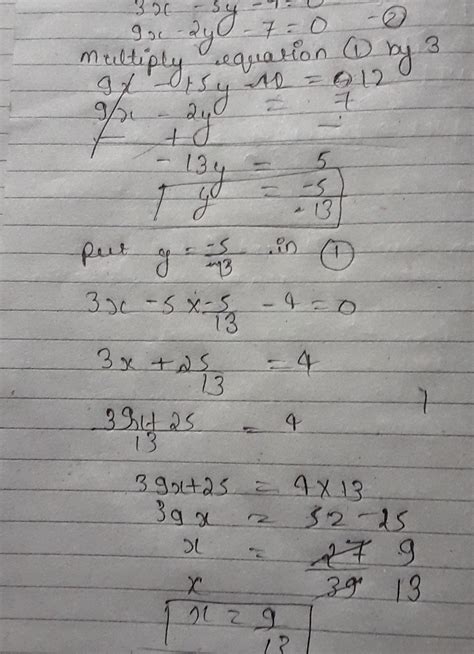 3x - 5y - 4 = 0
9x - 2y - 7 = 0 - ②
multiply equation ① by 3
9x - 15y = 12
9x - 2y = 7
- + -
- 13y = 5
y = -5/13
put y = -5/13 in ①
3x - 5 × -5/13 - 4 = 0
3x + 25/13 = 4
39x + 25/13 = 4
39x + 25 = 4 × 13
39x = 52 - 25
x = 27/39 9/13
x
x = 9/13